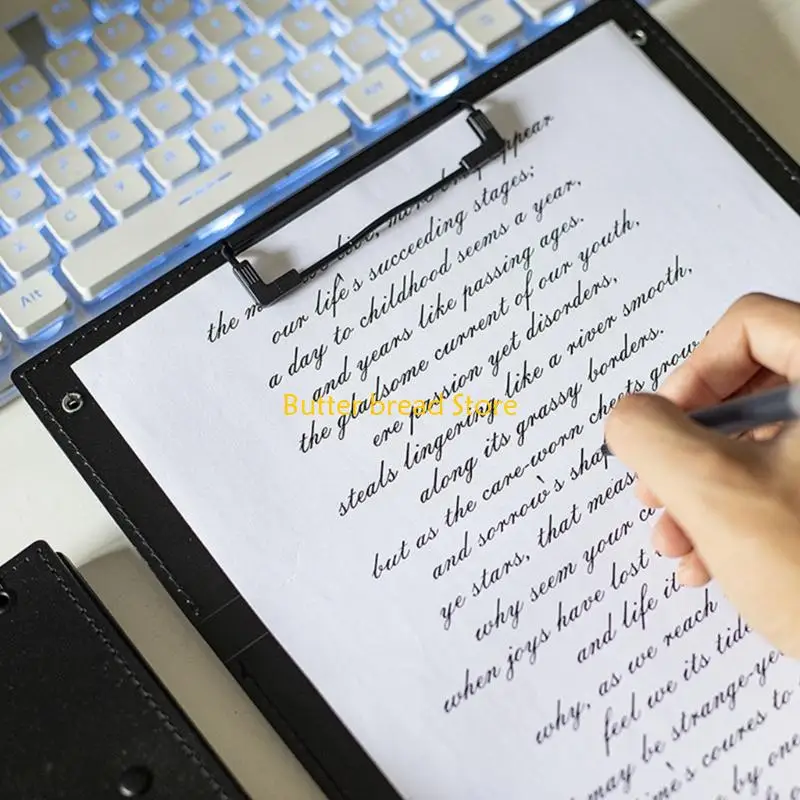 Alt
the live, more appear
our life's succeeding stages;
a day to childhood seems a year,
and years like passing ages.
the gladsome current of our youth,
ere passion yet disorders,
Butter bread Store
steals lingering like a river smooth,
along its grassy borders.
but as the care-worn cheets grow
and sorrow's
ye stars, that
why seem your
when joys have lost
and life
why, as we reach
feel we its tide
may be strange-ye
ime's coures to
by one